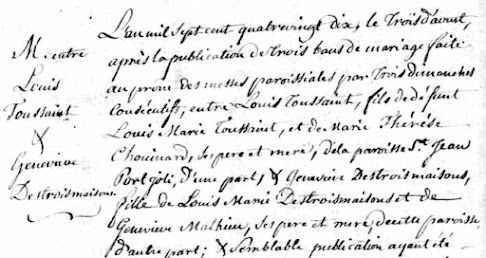 L'an mil sept cent quatrevingt dix, le Trois d'aout,
après la publication de trois bans de mariage faite
au prone des messes paroissiales par Trois dimanches
consécutifs, entre Louis Toussaint, fils de défunt
Louis Marie Toussaint, et de Marie Thérèse
Chouinard, ses pere et mere, de la paroisse St. Jean
Port Joli, d'une part, & Geneviève Destroismaisons,
fille de Louis Marie Destroismaisons et de
Geneviève Mathieu, ses pere et mere, de cette paroisse,
d'autre part; & Semblable publication ayant été
M. entre
Louis
Toussaint
&
Genevieve
Destroismaisons